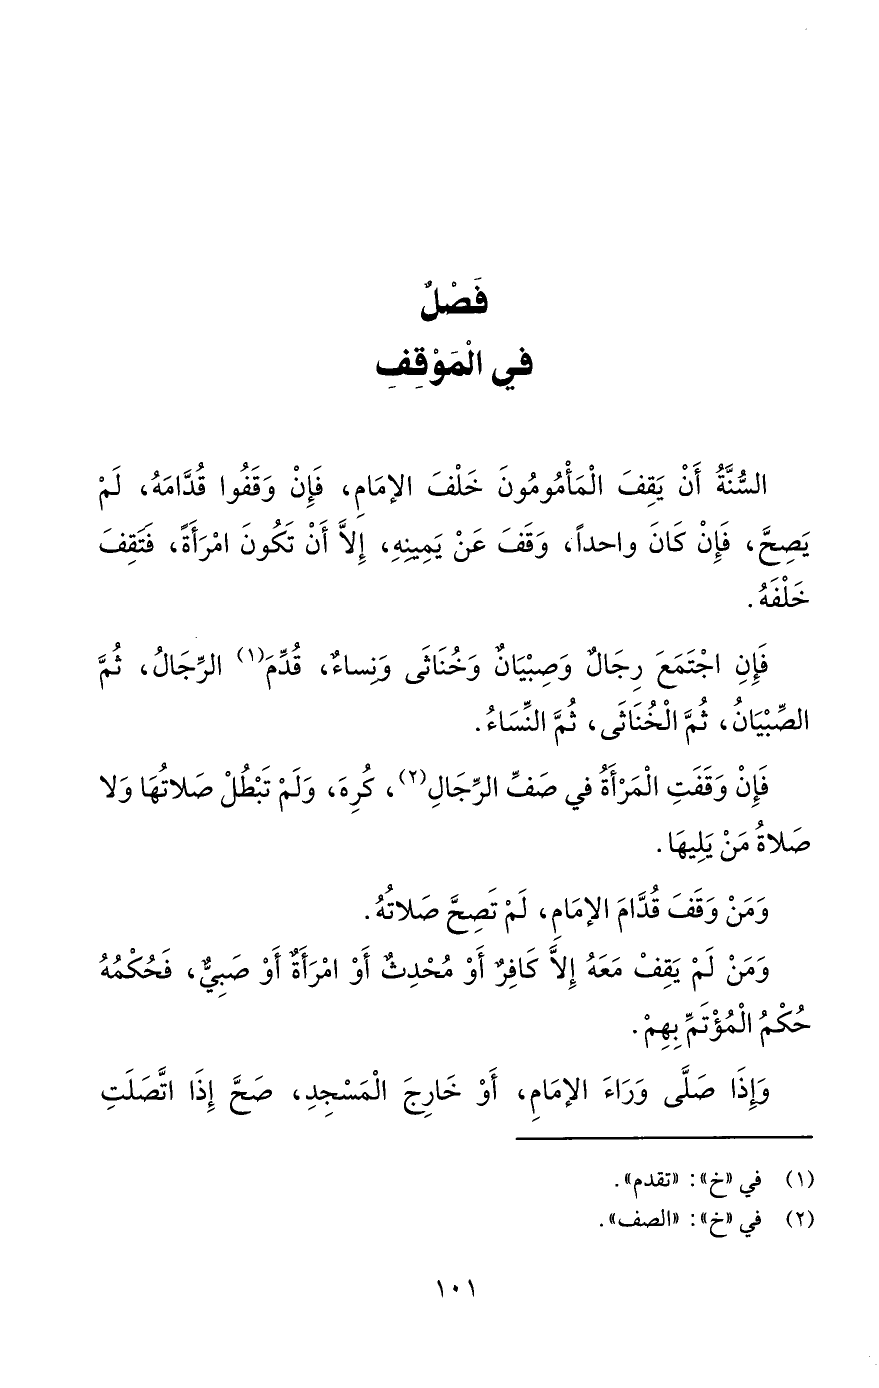 فَصْلٌ
في الْمَوْقِفِ
السُّنَّةُ أَنْ يَقِفَ الْمَأْمُومُونَ خَلْفَ الإمَامِ، فَإِنْ وَقَفُوا قُدَّامَهُ، لَمْ
يَصِحَّ، فَإِنْ كَانَ واحداً، وَقَفَ عَنْ يَمِينِهِ، إِلاَّ أَنْ تَكُونَ امْرَأَةً، فَتَقِفَ
خَلْفَهُ.
فَإِنِ اجْتَمَعَ رِجَالٌ وَصِبْيَانٌ وَخُنَاثَى وَنِساءٌ، قُدِّمَ(١) الرِّجَالُ، ثُمَّ
الصِّبْيَانُ، ثُمَّ الْخُنَاثَى، ثُمَّ النِّسَاءُ.
فَإِنْ وَقَفَتِ الْمَرْأَةُ في صَفِّ الرِّجَالِ(٢)، كُرِهَ، وَلَمْ تَبْطُلْ صَلاتُهَا وَلا
صَلاةُ مَنْ يَلِيهَا.
وَمَنْ وَقَفَ قُدَّامَ الإمَامِ، لَمْ تَصِحَّ صَلاتُهُ.
وَمَنْ لَمْ يَقِفْ مَعَهُ إِلاَّ كَافِرٌ أَوْ مُحْدِثٌ أَوْ امْرَأَةٌ أَوْ صَبِيٌّ، فَحُكْمُهُ
حُكْمُ الْمُؤْتَمِّ بِهِمْ.
وَإِذَا صَلَّى وَرَاءَ الإمَامِ، أَوْ خَارِجَ الْمَسْجِدِ، صَحَّ إِذَا اتَّصَلَتِ
(١) في «خ»: «تقدم».
(٢) في «خ»: «الصف».
١٠١